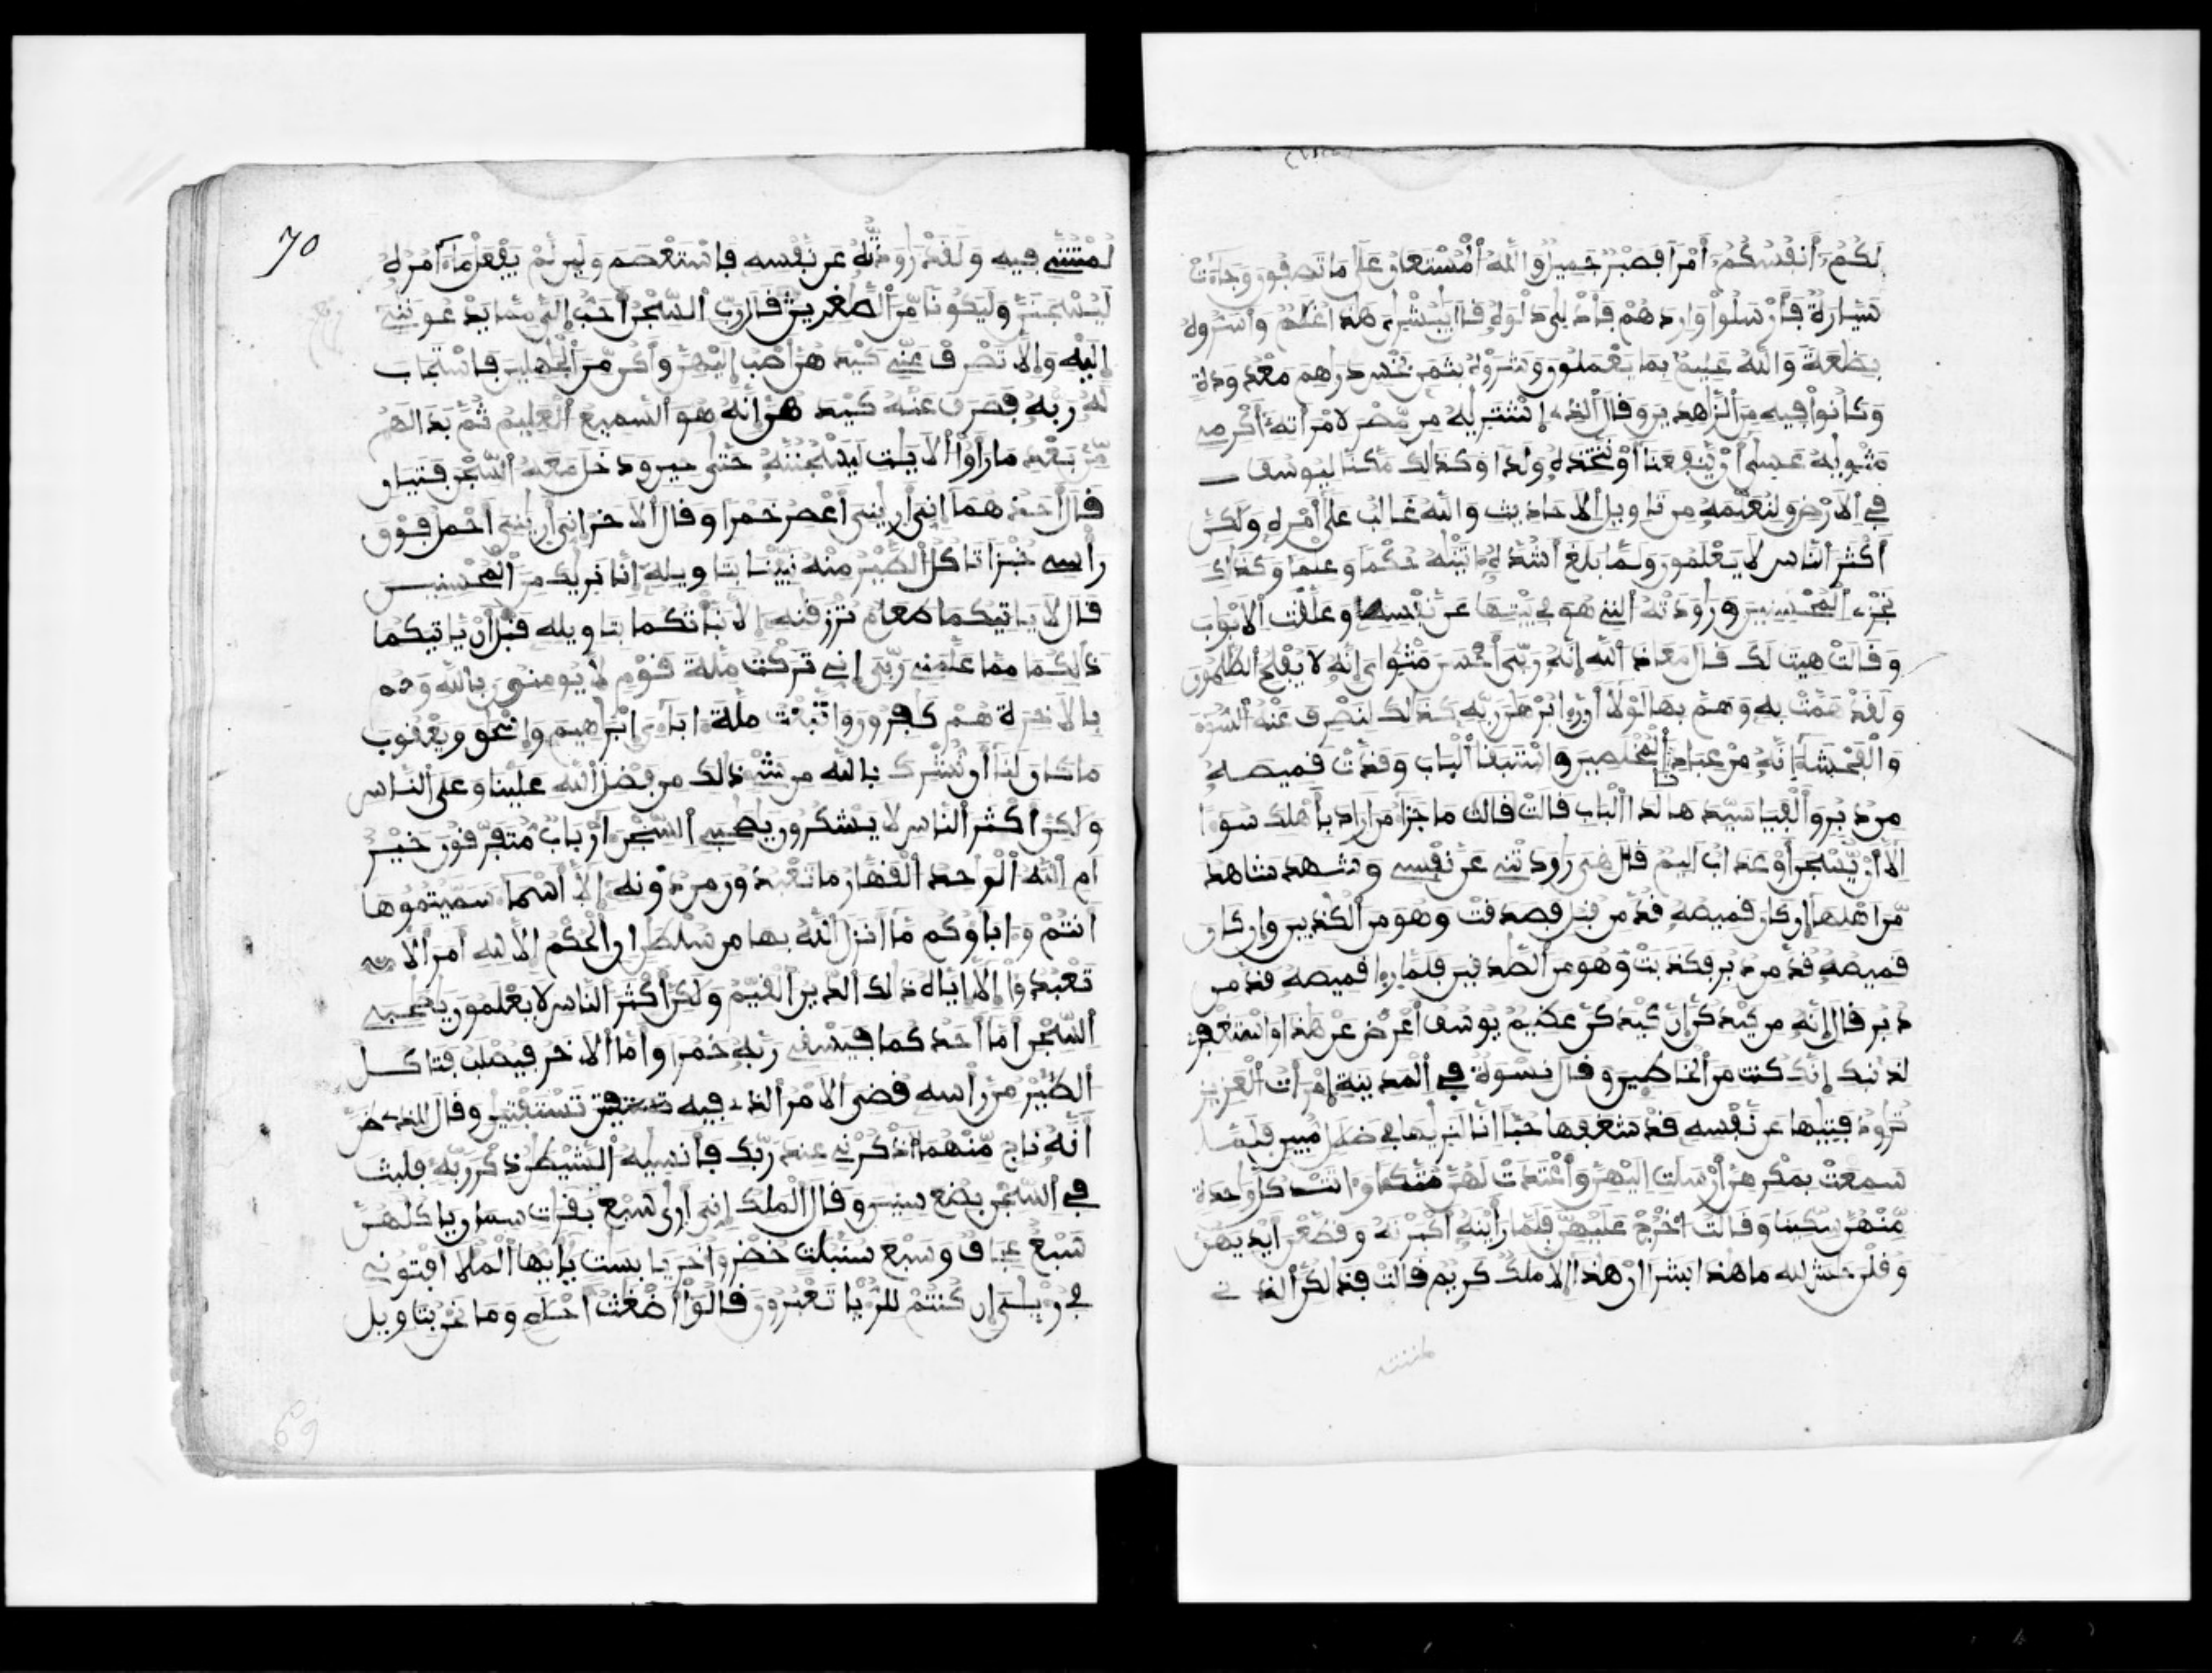 لكم أنفسكم أمرا فصبر جميل والله المستعان على ما تصفون وجاءت
سيارة فأرسلوا واردهم فأدلى دلوه قال يبشرى هذا غلم وأسروه
بضعة والله عليم بما يعملون وشروه بثمن بخس درهم معدودة
وكانوا فيه من الزهدين وقال الذى اشتريه من مصر لامرأته أكرمى
مثويه عسى أن ينفعنا أو نتخذه ولدا وكذلك مكنا ليوسف
في الارض ولنعلمه من تاويل الاحاديث والله غالب على أمره ولكن
أكثر الناس لا يعلمون ولما بلغ أشده اتينه حكما وعلما وكذلك
نجزى المحسنين ورودته التى هو في بيتها عن نفسه وغلقت الابواب
وقالت هيت لك قال معاذ الله إنه ربى أحسن مثواى إنه لا يفلح الظلمون
ولقد همت به وهم بها لولا أن را برهن ربه كذلك لنصرف عنه السوء
والفحشا إنه من عبادنا المخلصين واستبقا الباب وقدت قميصه
من دبر وألفيا سيدها لدا الباب قالت قالت ما جزا من اراد بأهلك سوا
الا أن يسجن أو عذاب اليم قال هى رودتنى عن نفسى وشهد شاهد
من اهلها إن كان قميصه قد من قبل فصدقت وهو من الكذبين وان كان
قميصه قد من دبر فكذبت وهو من الصدقين فلما را قميصه قد من
دبر قال إنه من كيدكن إن كيدكن عظيم يوسف أعرض عن هذا واستغفرى
لذنبك إنك كنت من الخاطين وقال نسوة في المدينة امرأت العزيز
ترود فتيها عن نفسه قد شغفها حبا انا لنريها في ضلل مبين فلما
سمعت بمكرهن أرسلت اليهن وأعتدت لهن متكا واتت كل وحدة
منهن سكينا وقالت اخرج عليهن فلما رأينه أكبرنه وقطعن أيديهن
وقلن حش لله ما هذا بشرا ان هذا إلا ملك كريم قالت فذلكن الذى
لمتننى فيه ولقد رودته عن نفسه فاستعصم ولين لم يفعل ما امره
ليسجنن وليكونا من الصغرين قال رب السجن أحب إلى مما يدعوننى
إليه وإلا تصرف عنى كيدهن أصب إليهن وأكن من الجهلين فاستجاب
له ربه فصرف عنه كيدهن إنه هو السميع العليم ثم بدا لهم
من بعد ما رأوا الايت ليسجننه حتى حين ودخل معه السجن فتين
قال أحدهما إنى أرينى أعصر خمرا وقال الاخر إنى أرينى أحمل فوق
رأسى خبزا تاكل الطير منه نبينا بتاويله إنا نريك من المحسنين
قال لا ياتيكما طعام ترزقنه إلا نبأتكما بتاويله قبل أن ياتيكما
ذلكما مما علمنى ربى إنى تركت ملة قوم لا يومنون بالله وهم
بالاخرة هم كفرون واتبعت ملة اباءى ابرهيم وإسحق ويعقوب
ما كان لنا أن نشرك بالله من شى ذلك من فضل الله علينا وعلى الناس
ولكن أكثر الناس لا يشكرون يصحبى السجن أرباب متفرقون خير
ام الله الوحد القهار ما تعبدون من دونه إلا أسما سميتموها
أنتم واباؤكم ما أنزل الله بها من سلطن إن الحكم إلا لله أمر ألا
تعبدوا إلا إياه ذلك الدين القيم ولكن أكثر الناس لا يعلمون يصحبى
السجن أما أحدكما فيسقى ربه خمرا وأما الاخر فيصلب فتاكل
الطير من رأسه قضى الامر الذى فيه تستفتين وقال للذى ظن
أنه ناج منهما اذكرنى عند ربك فأنسيه الشيطن ذكر ربه فلبث
في السجن بضع سنين وقال الملك إنى أرى سبع بقرات سمان ياكلهن
سبع عجاف وسبع سنبلت خضر واخر يابست يأيها الملا افتونى
في رءيى إن كنتم للرءيا تعبرون قالوا أضغث احلم وما نحن بتاويل
70
69